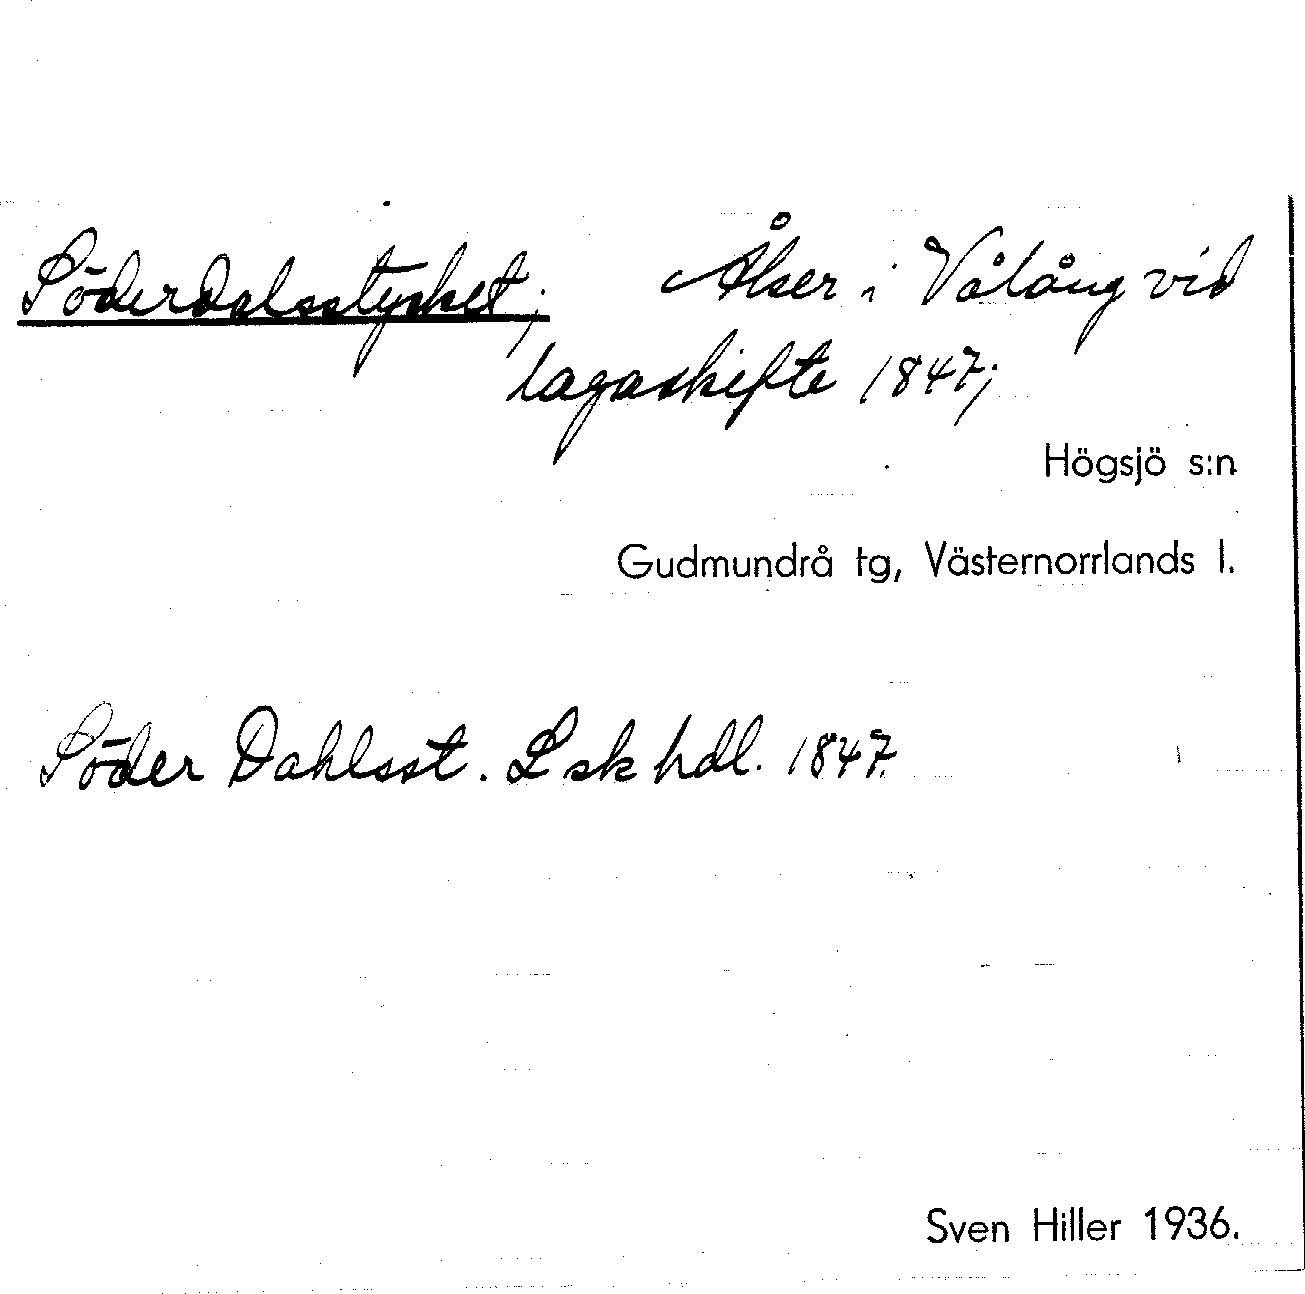 Söderdalsstycket; Åker i Vålång vid
lagaskifte 1847;
Högsjö s:n
Gudmundrå tg, Västernorrlands l.
Söder Dahlsst. L sk hdl. 1847.
Sven Hiller 1936.